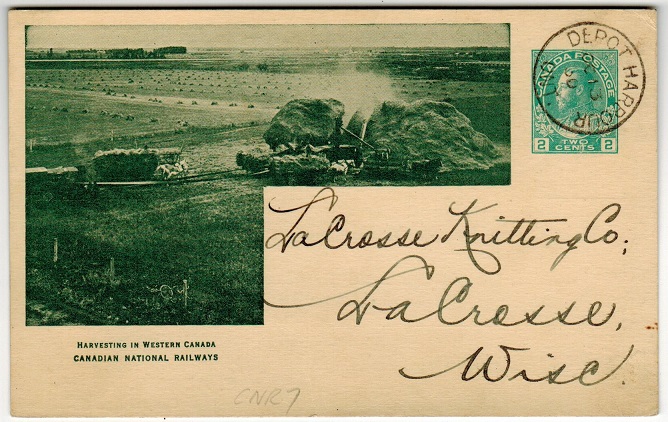 DEPOT HARBOUR
CANADA POSTAGE
2 TWO CENTS 2
LaCrosse Knitting Co;
LaCrosse,
Wisc.
HARVESTING IN WESTERN CANADA
CANADIAN NATIONAL RAILWAYS
CNR7